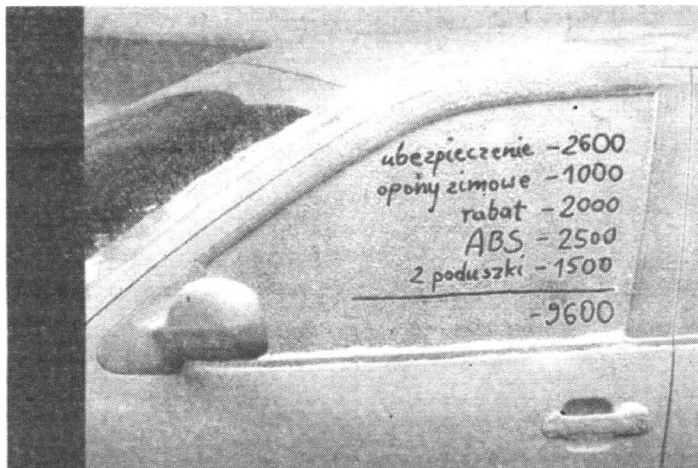 ubezpieczenie -2600
opony zimowe -1000
rabat -2000
ABS -2500
2 poduszki -1500
-9600